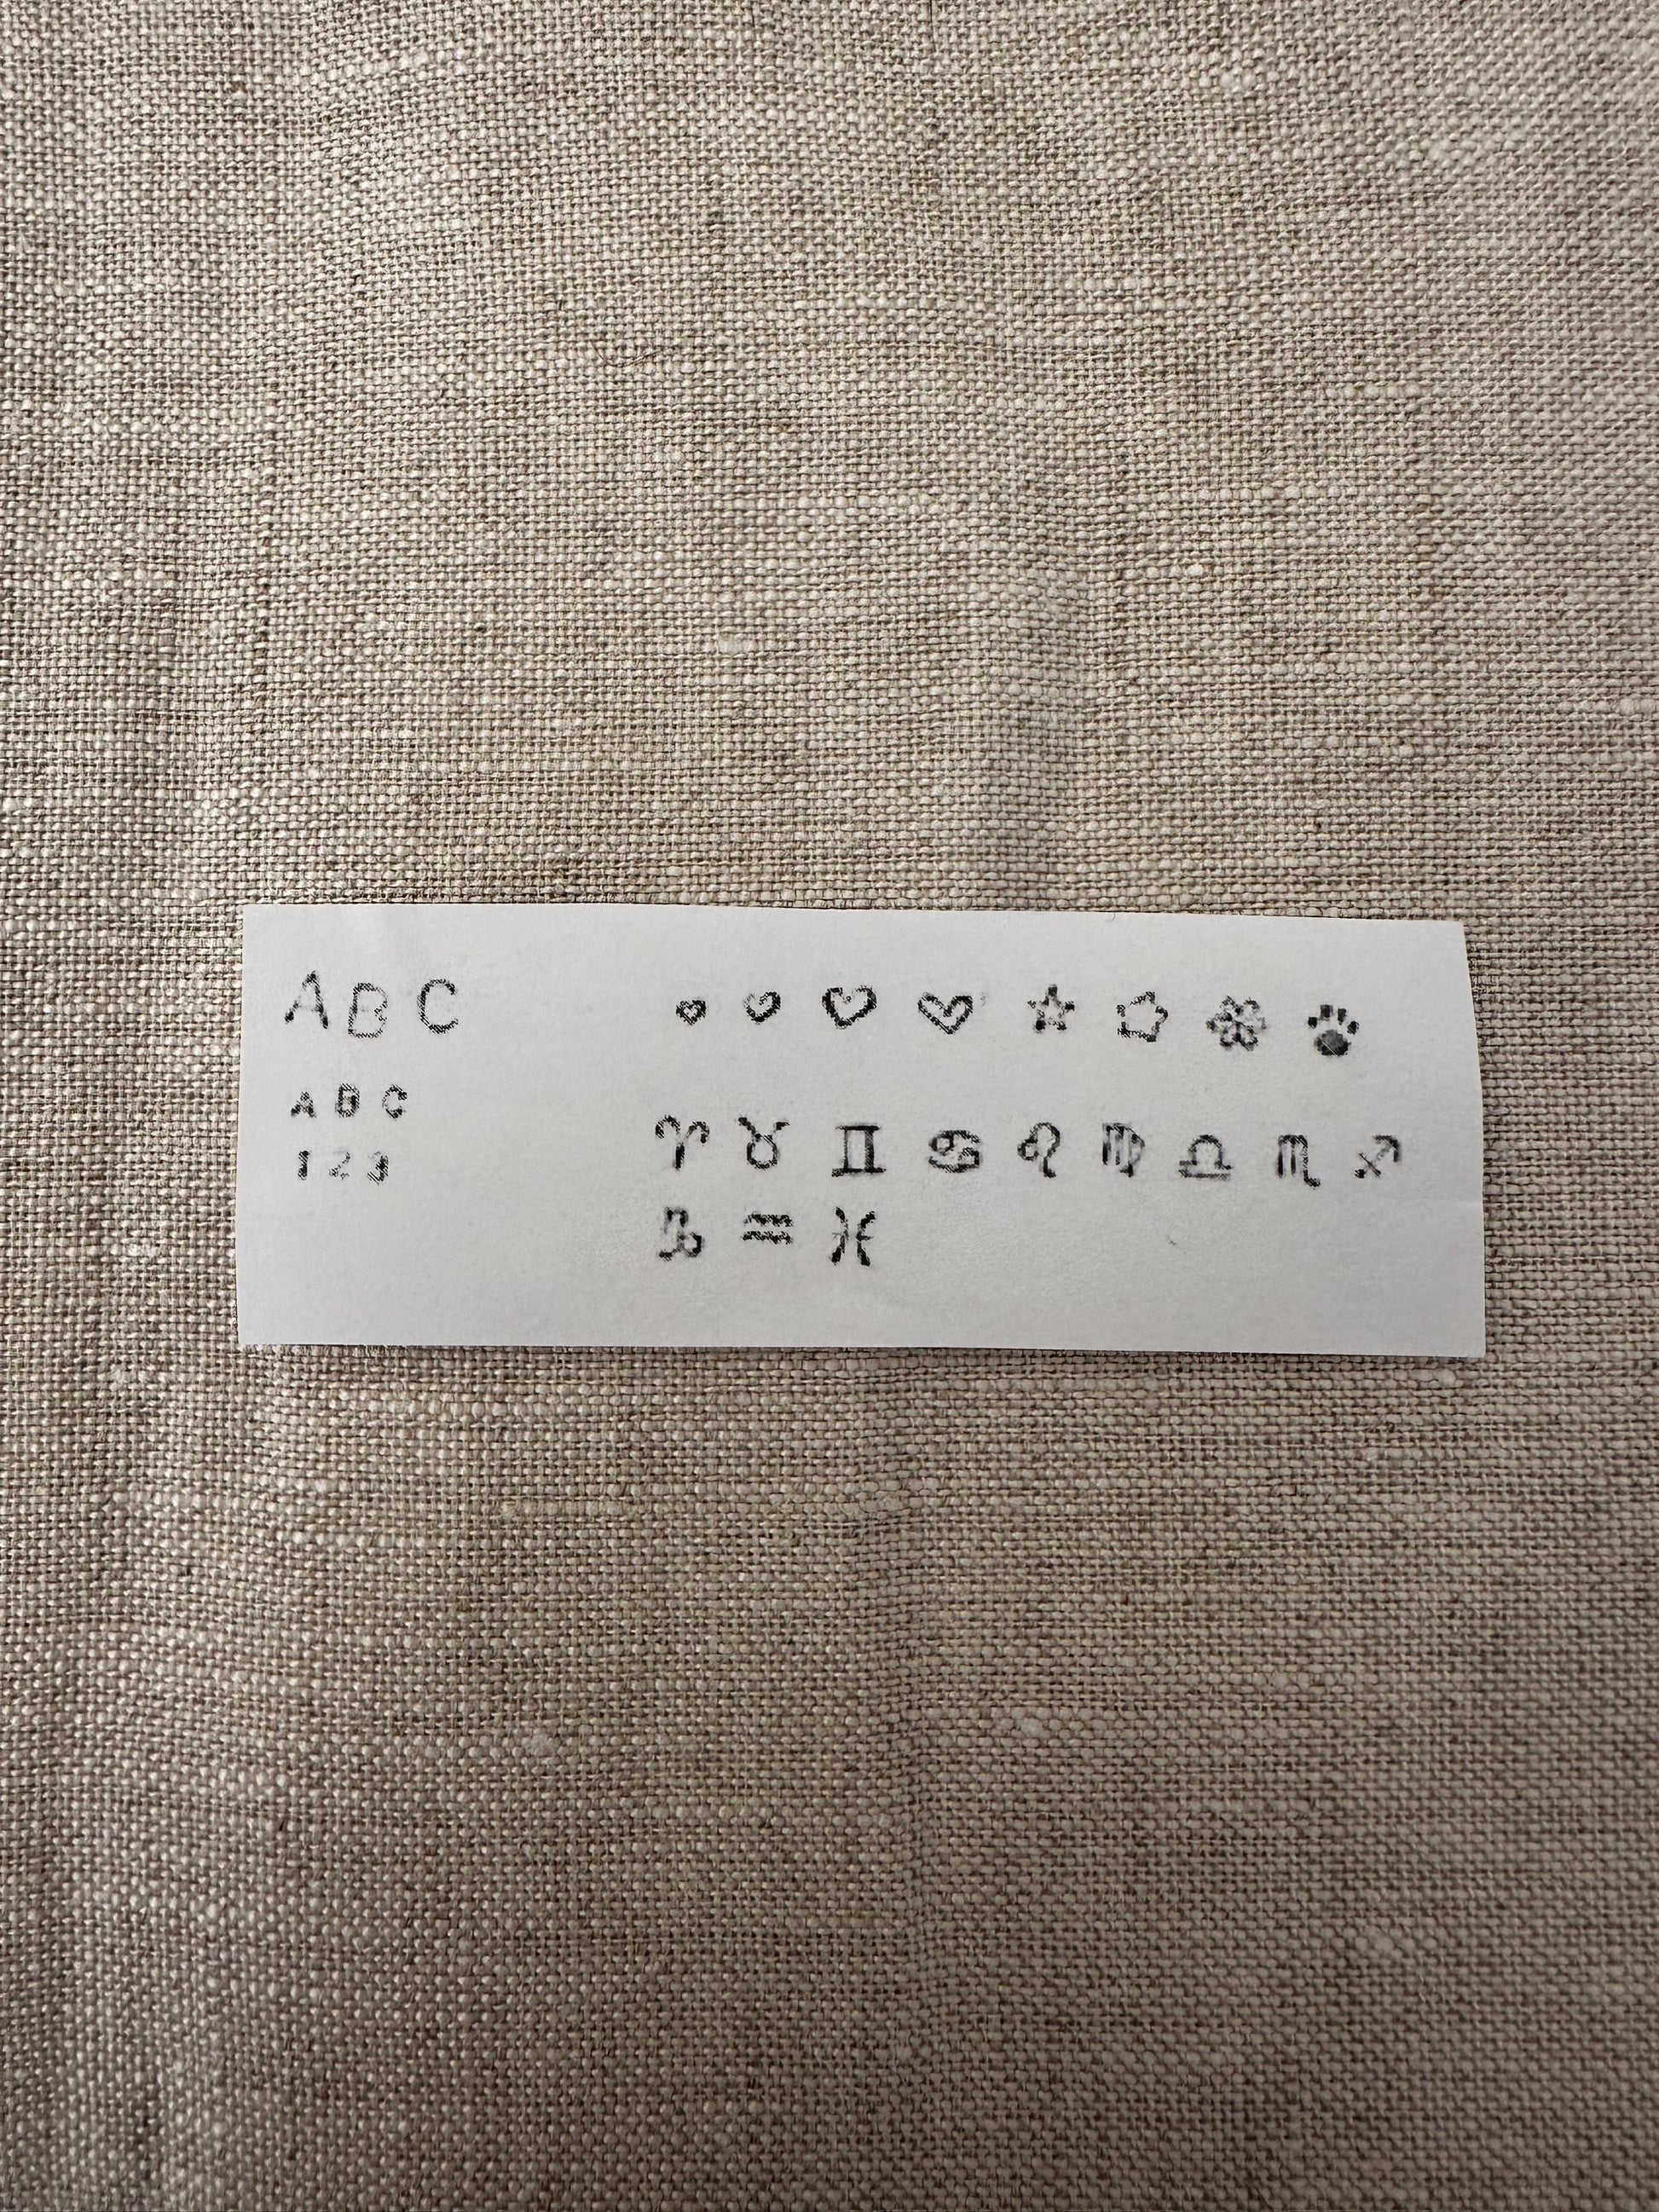 A B C
A B C
1 2 3
♈ ♉ ♊ ♋ ♌ ♍ ♎ ♏ ♐
♑ ♒ ♓